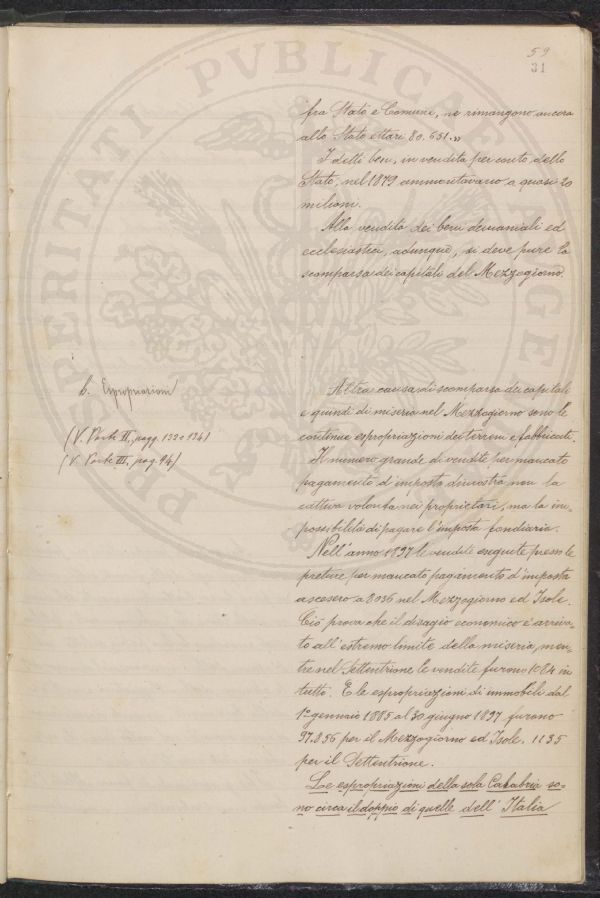 59
31
fra Stato e Comune, ne rimangono ancora
allo Stato ettari 80.651.„
I detti beni, in vendita per conto dello
Stato, nel 1879 ammontavano a quasi 20
milioni.
Alla vendita dei beni demaniali ed
ecclesiastici, adunque, si deve pure la
scomparsa dei capitali del Mezzogiorno.
b. Espropriazioni
(V. Parte II, pagg. 132 e 134)
(V. Parte III, pag. 94)
Altra causa di scomparsa dei capitali
e quindi di miseria nel Mezzogiorno sono le
continue espropriazioni dei terreni e fabbricati.
Il numero grande di vendite per mancato
pagamento d'imposta dimostra non la
cattiva volontà nei proprietari, ma la im-
possibilità di pagare l'imposta fondiaria.
Nell'anno 1897 le vendite eseguite presso le
preture per mancato pagamento d'imposta
ascesero a 8036 nel Mezzogiorno ed Isole.
Ciò prova che il disagio economico è arriva-
to all'estremo limite della miseria, men-
tre nel Settentrione le vendite furono 1084 in
tutto. E le espropriazioni di immobili dal
1º gennaio 1885 al 30 giugno 1897 furono
97.856 per il Mezzogiorno ed Isole, 1135
per il Settentrione.
Le espropriazioni della sola Calabria so-
no circa il doppio di quelle dell'Italia
PROSPERITATI PVBLICAE